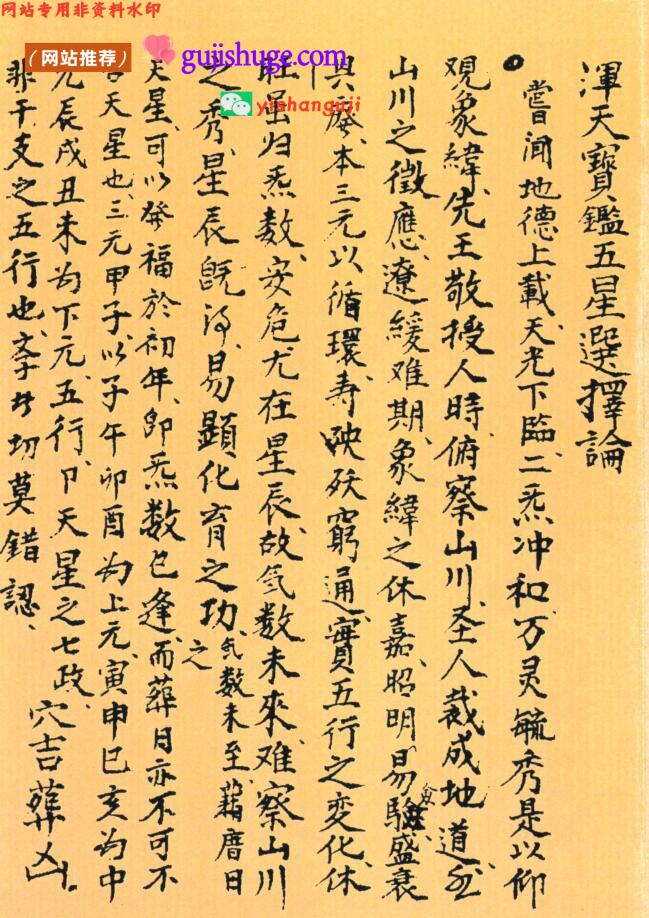 网站专用非资料水印
（网站推荐）
gujishuge.com
yishanguji
渾天寶鑑五星選擇論
嘗聞地德上載天光下臨二炁冲和万灵毓秀是以仰
观象緯先王敬授人時俯察山川圣人裁成地道
山川之徵應遼緩难期象緯之休嘉昭明易驗盛衰
興廢本三元以循環寿殀穷通實五行之变化休
旺虽归炁数安危尤在星辰故气数未來难察山川
之秀星辰既得易顯化育之功气数未至藉曆日之
天星可以發福於初年即炁数已逢而葬日亦不可不
合天星也三元甲子以子午卯酉为上元寅申巳亥为中
元辰戌丑未为下元五行下天星之七政
非干支之五行也 切莫錯認
穴吉葬凶